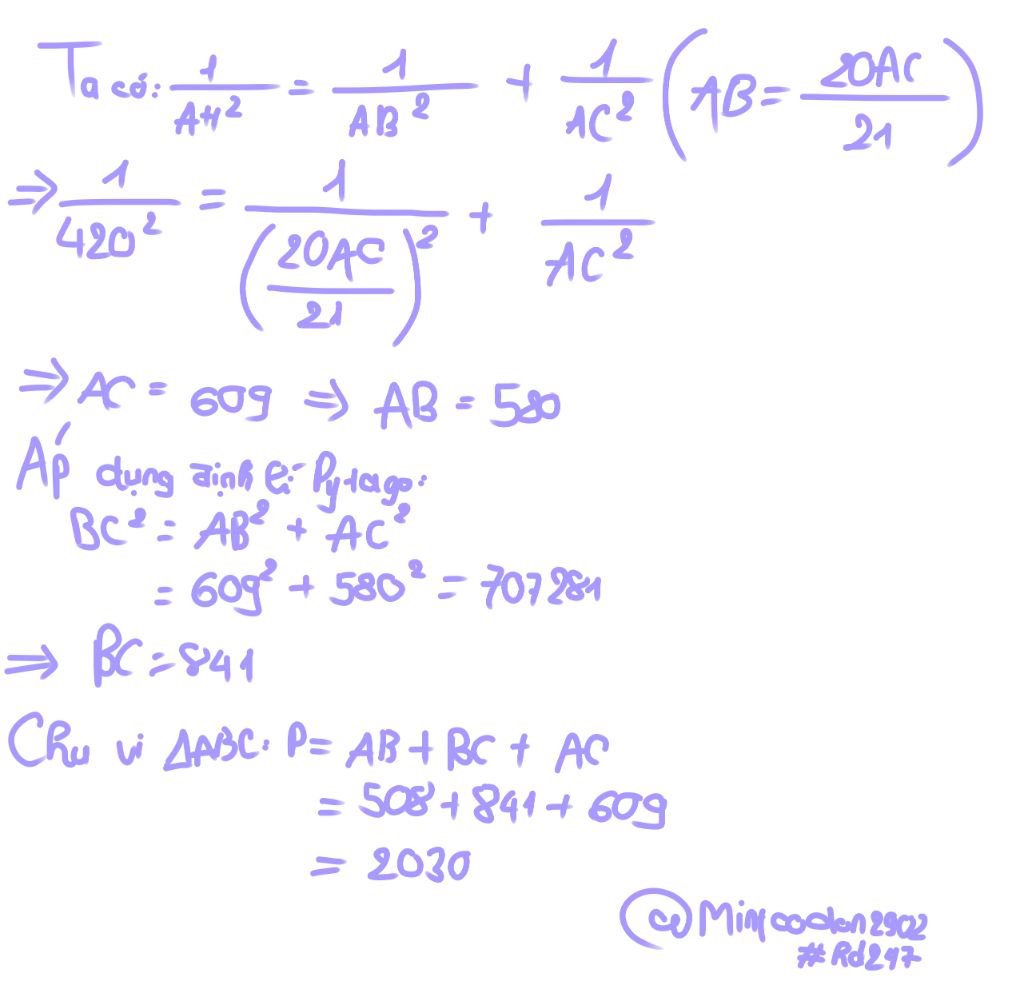 Ta có: 1/AH² = 1/AB² + 1/AC² (AB = 20AC/21)
⇒ 1/420² = 1/(20AC/21)² + 1/AC²
⇒ AC = 609 ⇒ AB = 580
Áp dụng định lí Py-tago:
BC² = AB² + AC²
= 609² + 580² = 707281
⇒ BC = 841
Chu vi ΔABC: P = AB + BC + AC
= 508 + 841 + 609
= 2030
#Rd247